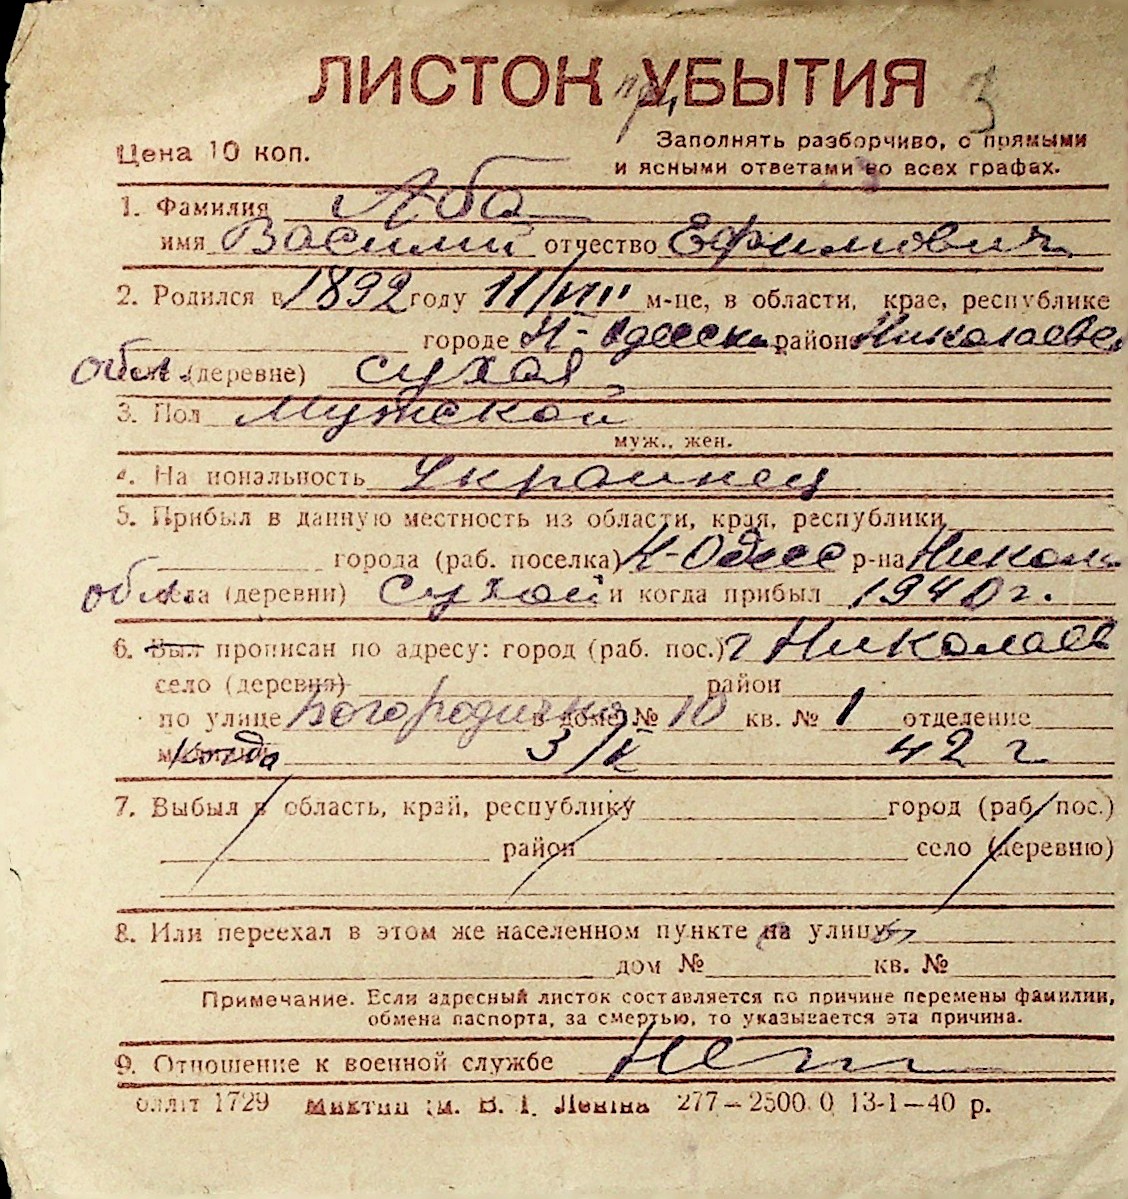 ЛИСТОК при УБЫТИЯ 3
Цена 10 коп.
Заполнять разборчиво, с прямыми
и ясными ответами во всех графах.
1. Фамилия Аба
имя Василий отчество Ефимович
2. Родился в 1892 году 11/VIII м-це, в области, крае, республике
городе Н-Одесск. районе Николаевс
обл. (деревне) Сухая
3. Пол Мужской
муж., жен.
4. Национальность Украинец
5. Прибыл в данную местность из области, края, республики
города (раб. поселка) Н-Одесс р-на Никол
обл. (деревни) Сухой и когда прибыл 1940 г.
6. Был прописан по адресу: город (раб. пос.) г Николаев
село (деревня) район
по улице Богородична в доме № 10 кв. № 1 отделение
когда 42 г.
7. Выбыл в область, край, республику город (раб. пос.)
район село (деревню)
8. Или переехал в этом же населенном пункте на улицу
дом № кв. №
Примечание. Если адресный листок составляется по причине перемены фамилии,
обмена паспорта, за смертью, то указывается эта причина.
9. Отношение к военной службе Нет
1729 277—2500.0 13-1—40 р.